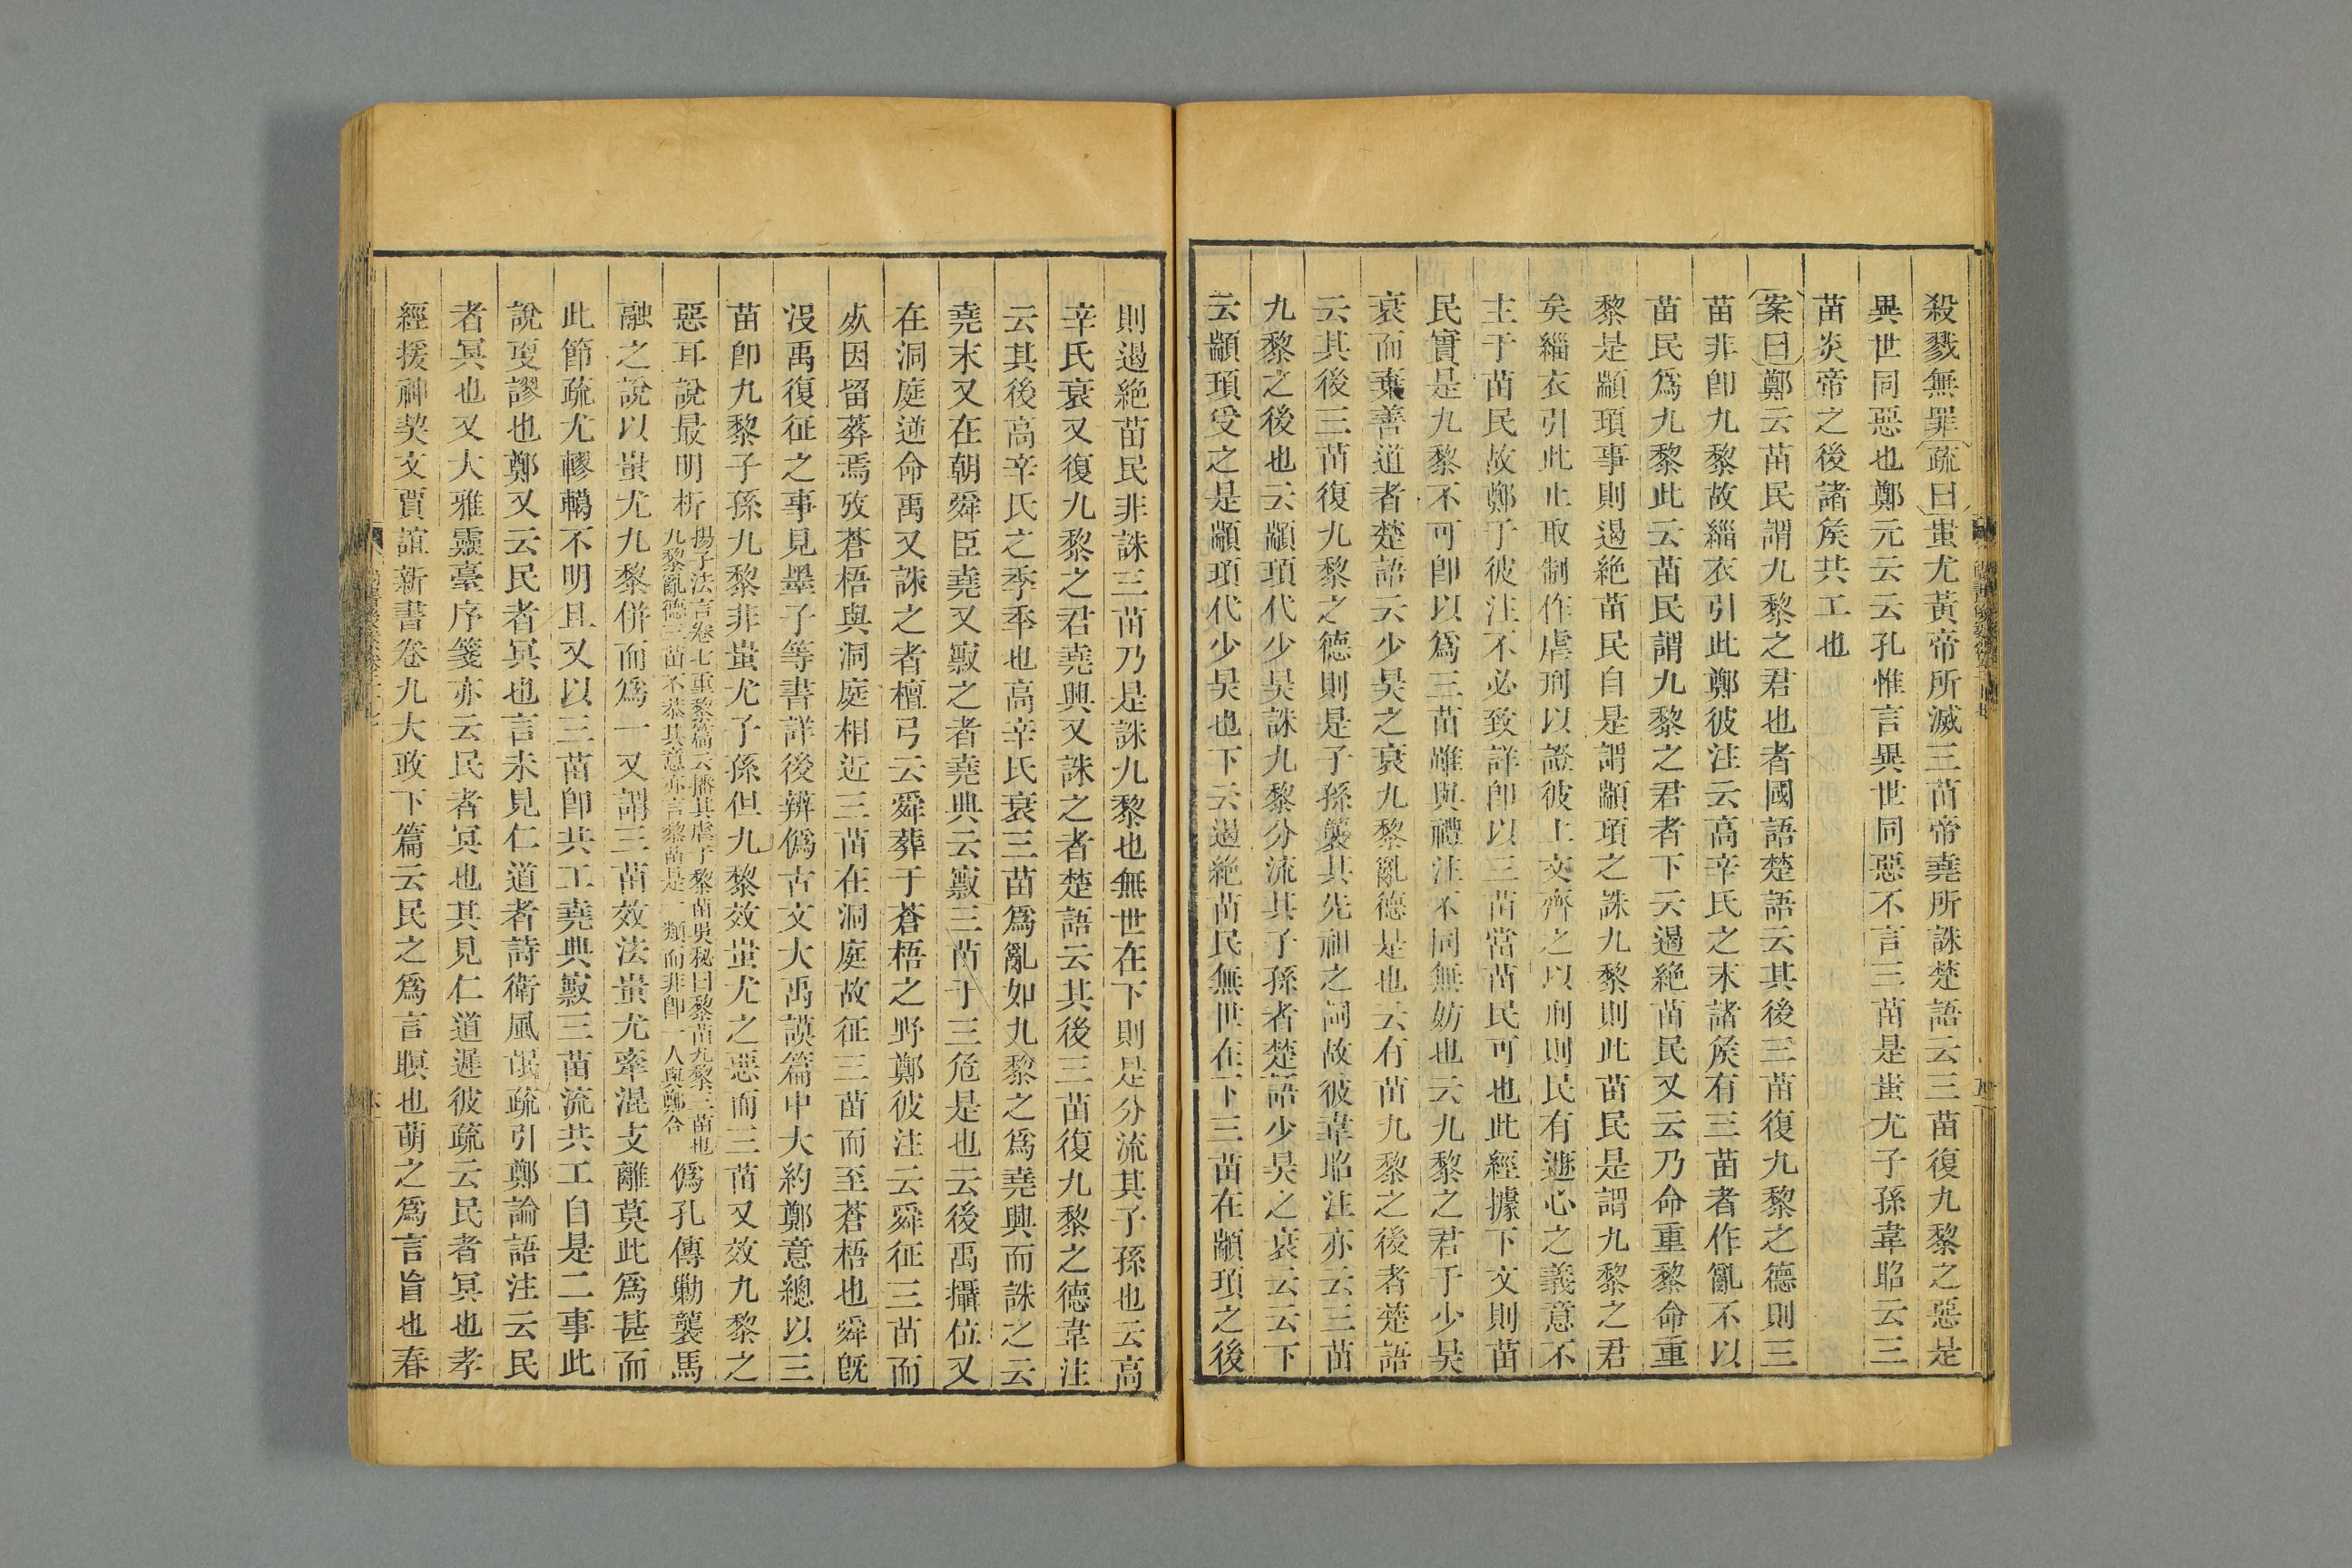 殺戮無罪疏曰蚩尤黃帝所滅三苗帝堯所誅楚語云三苗復九黎之惡是
異世同惡也鄭元云云孔惟言異世同惡不言三苗是蚩尤子孫韋昭云三
苗炎帝之後諸矦共工也
案曰鄭云苗民謂九黎之君也者國語楚語云其後三苗復九黎之德則三
苗非卽九黎故緇衣引此鄭彼注云高辛氏之末諸矦有三苗者作亂不以
苗民爲九黎此云苗民謂九黎之君者下云遏絶苗民又云乃命重黎命重
黎是顓頊事則遏絶苗民自是謂顓頊之誅九黎則此苗民是謂九黎之君
矣緇衣引此止取制作虐刑以證彼上文齊之以刑則民有遯心之義意不
主于苗民故鄭于彼注不必致詳卽以三苗當苗民可也此經據下文則苗
民實是九黎不可卽以爲三苗雖與禮注不同無妨也云九黎之君于少昊
衰而棄善道者楚語云少昊之衰九黎亂德是也云有苗九黎之後者楚語
云其後三苗復九黎之德則是子孫襲其先祖之詞故彼韋昭注亦云三苗
九黎之後也云顓頊代少昊誅九黎分流其子孫者楚語少昊之衰云云下
云顓頊受之是顓頊代少昊也下云遏絶苗民無世在下三苗在顓頊之後
則遏絶苗民非誅三苗乃是誅九黎也無世在下則是分流其子孫也云高
辛氏衰又復九黎之君堯興又誅之者楚語云其後三苗復九黎之德韋注
云其後高辛氏之季年也高辛氏衰三苗爲亂如九黎之爲堯興而誅之云
堯末又在朝舜臣堯又竄之者堯典云竄三苗于三危是也云後禹攝位又
在洞庭逆命禹又誅之者檀弓云舜葬于蒼梧之野鄭彼注云舜征三苗而
死因留葬焉攷蒼梧與洞庭相近三苗在洞庭故征三苗而至蒼梧也舜旣
沒禹復征之事見墨子等書詳後辨僞古文大禹謨篇中大約鄭意總以三
苗卽九黎子孫九黎非蚩尤子孫但九黎效蚩尤之惡而三苗又效九黎之
惡耳說最明析揚子法言卷七重黎篇云播其虐于黎苗吳秘曰黎苗九黎三苗也九黎亂德三苗不恭其意亦言黎苗是一類而非卽一人與鄭合僞孔傳勦襲馬
融之說以蚩尤九黎併而爲一又謂三苗效法蚩尤牽混支離莫此爲甚而
此節疏尤轇轕不明且又以三苗卽共工堯典竄三苗流共工自是二事此
說更謬也鄭又云民者冥也言未見仁道者詩衛風氓疏引鄭論語注云民
者冥也又大雅靈臺序箋亦云民者冥也其見仁道遲彼疏云民者冥也孝
經援神契文賈誼新書卷九大政下篇云民之爲言瞑也萌之爲言盲也春